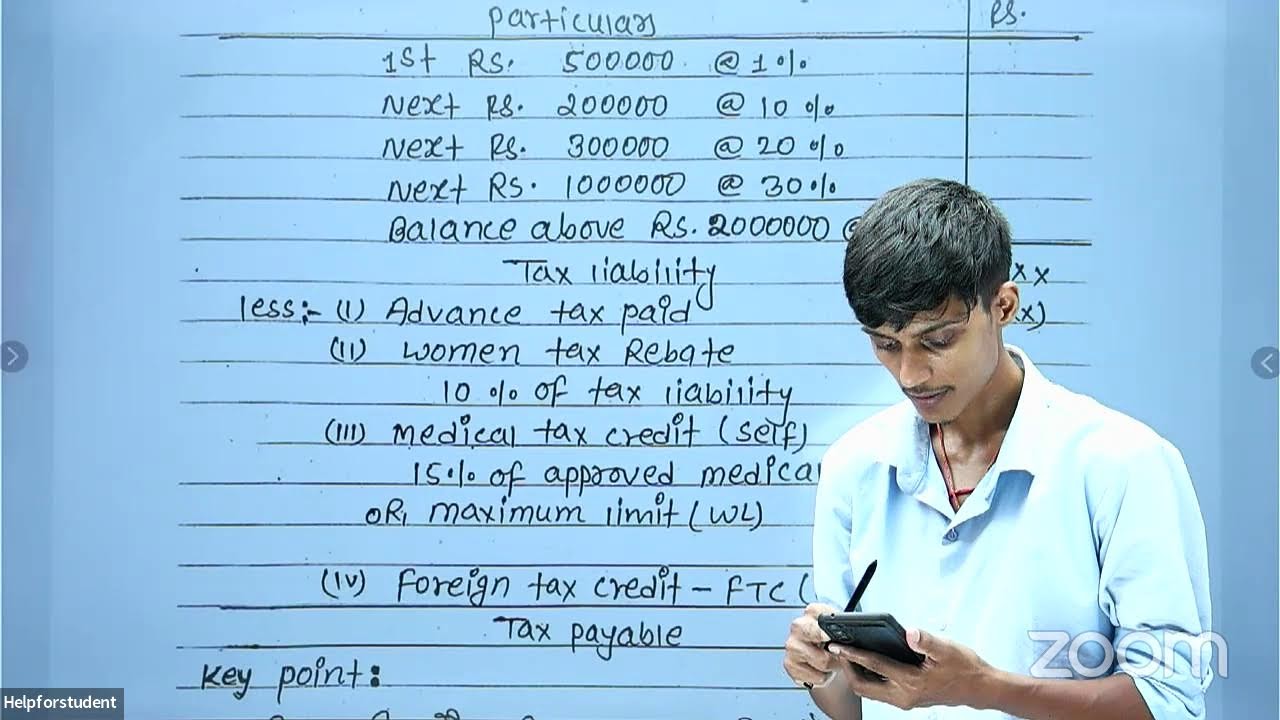 Particulars Rs.
1st Rs. 500000 @ 1%
Next Rs. 200000 @ 10%
Next Rs. 300000 @ 20%
Next Rs. 1000000 @ 30%
Balance above Rs. 2000000 @
Tax liability xx
less:- (I) Advance tax paid x)
(II) Women tax Rebate
10 % of tax liability
(III) Medical tax credit (self)
15% of approved medica
OR, maximum limit (WL)
(IV) Foreign tax credit - FTC (
Tax payable
Key point:
zoom
Helpforstudent